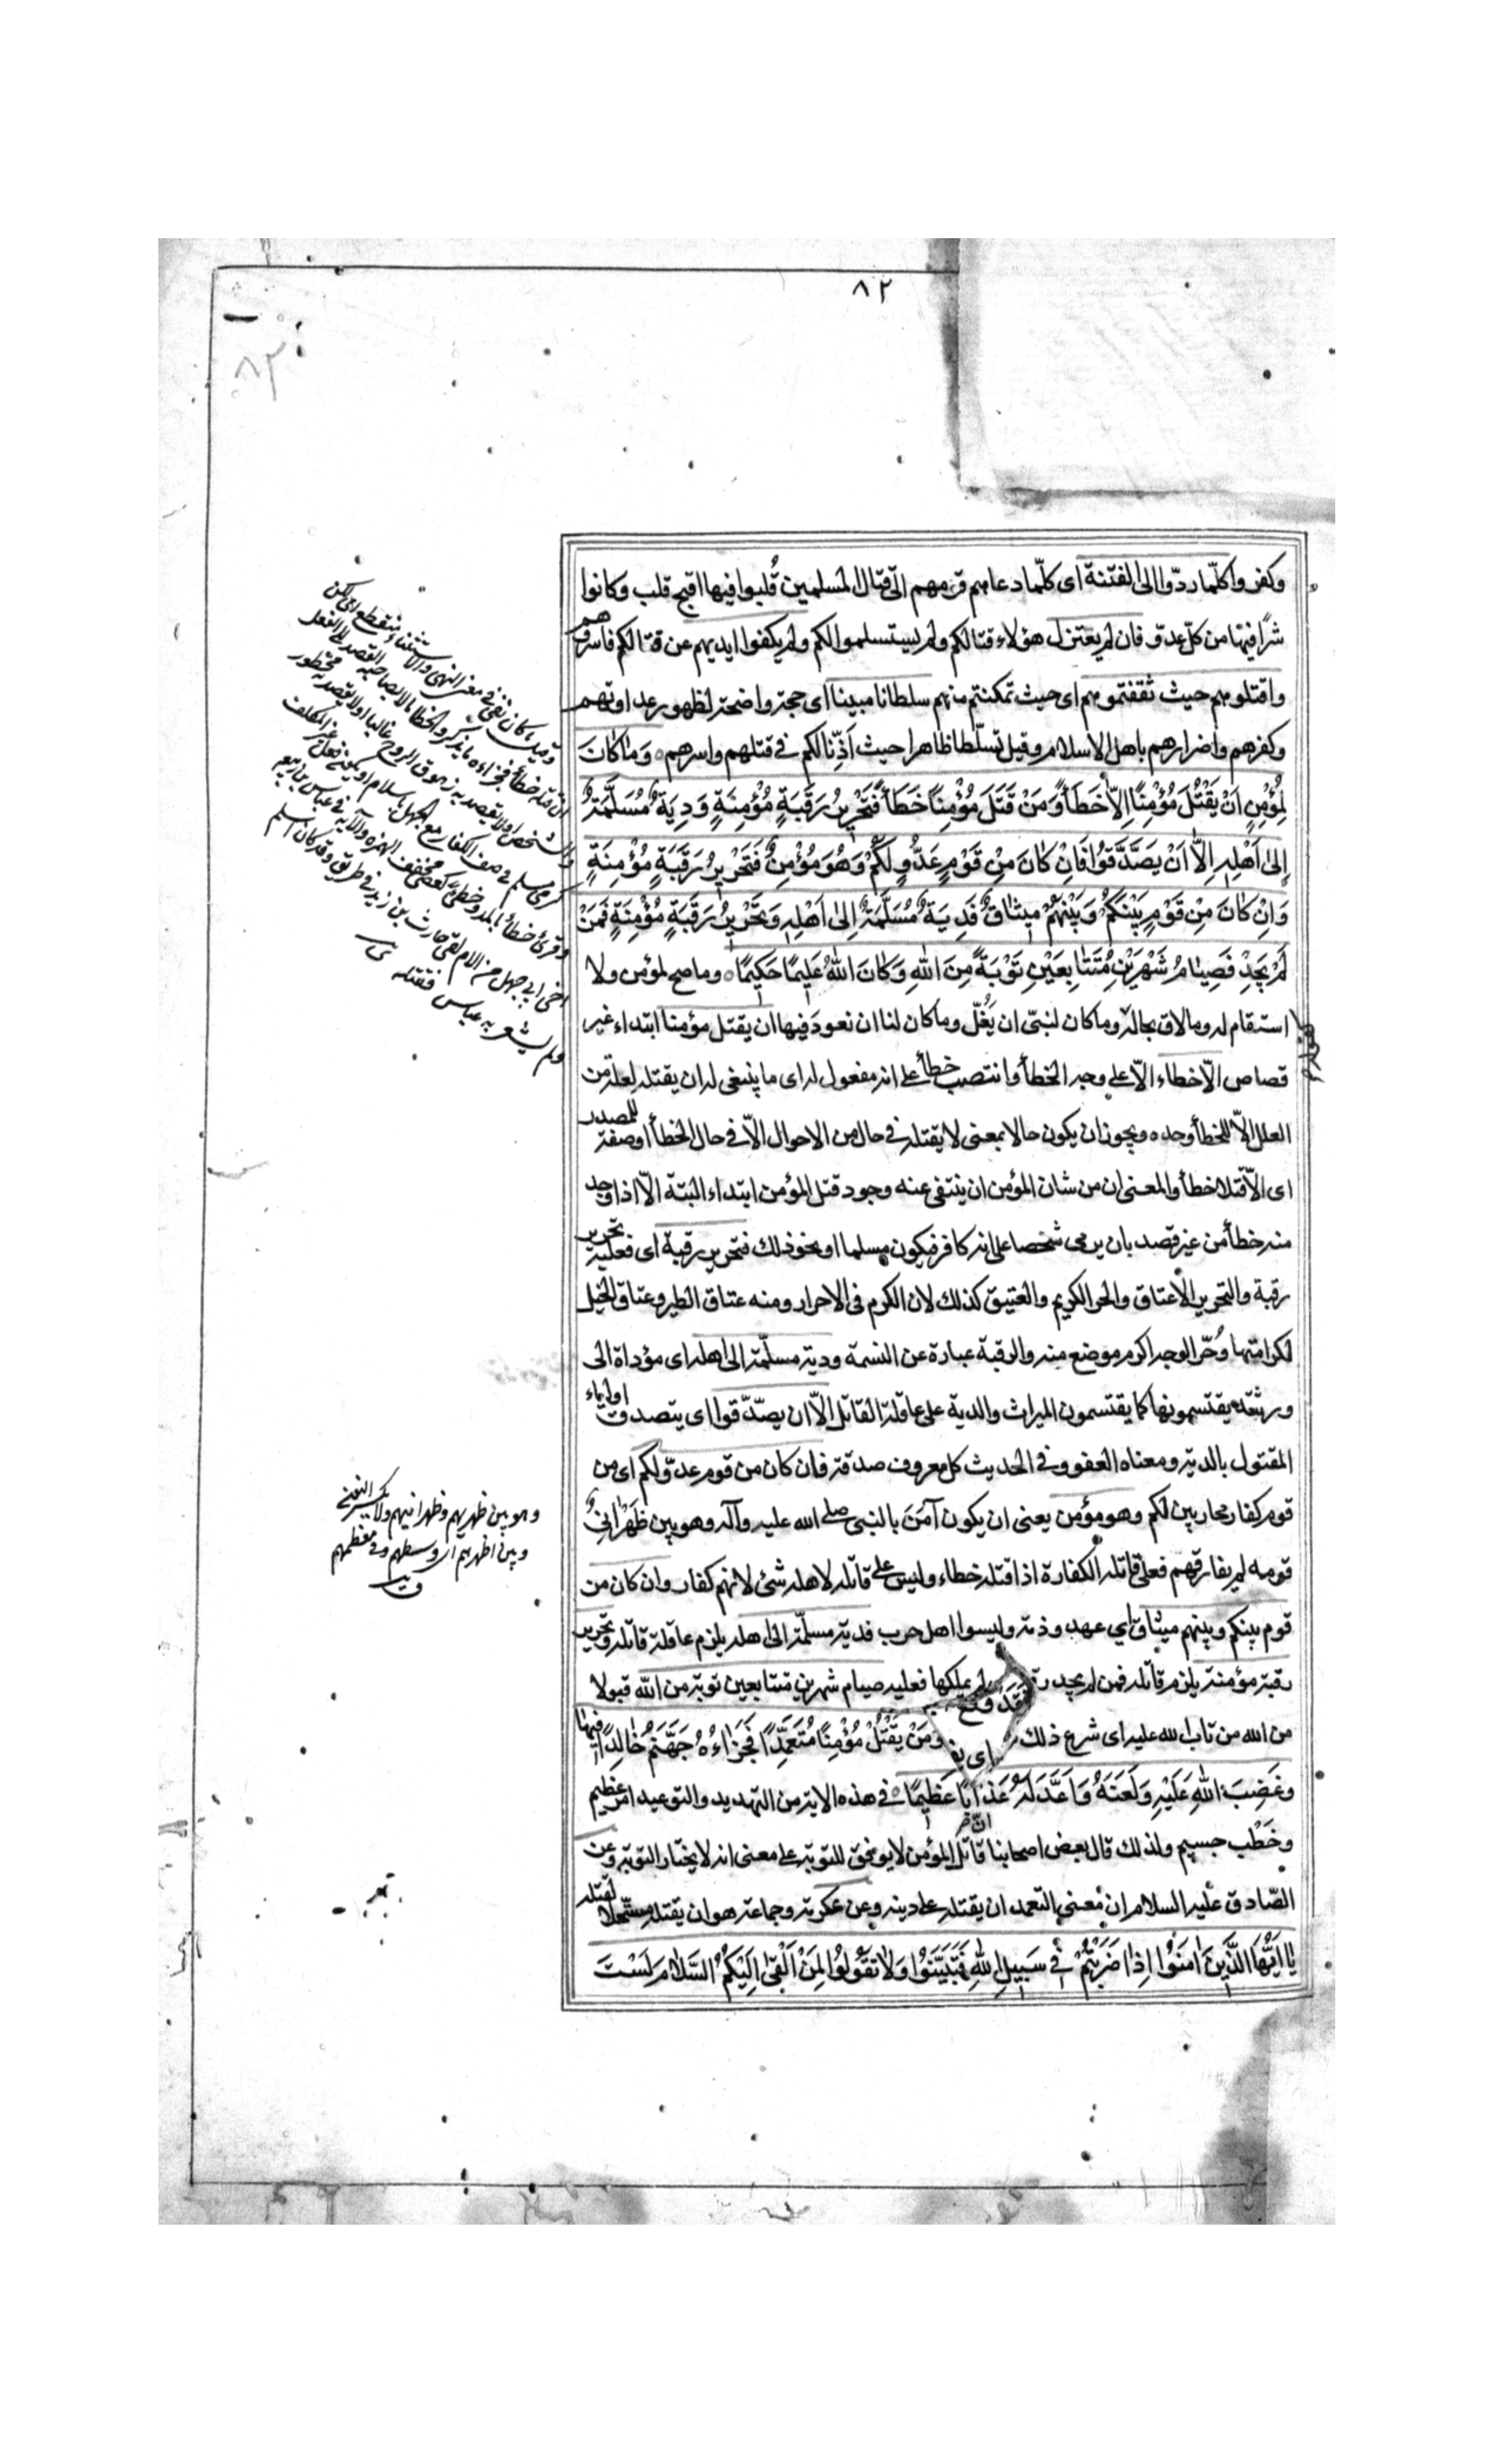 ٨٢
٨٢
وكفروا كلّما ردّوا الى الفتنة اى كلّما دعاهم قومهم الى قتال المسلمين قُلبوا فيها اقبح قلب وكانوا
شرًّا فيها من كلّ عدوّ فان لم يعتزل هؤلاء قتالكم ولم يستسلموا لكم ولم يكفوا ايديهم عن قتالكم فاسروهم
واقتلوهم حيث ثقفتموهم اى حيث تمكنتم منهم سلطانا مبينا اى حجة واضحة لظهور عداوتهم
وكفرهم واضرارهم باهل الاسلام وقيل تسلّطا ظاهرا حيث اَذِنّا لكم فى قتلهم واسرهم ٥ وَمَا كَانَ
لِمُؤْمِنٍ اَنْ يَقْتُلَ مُؤْمِنًا اِلاّٰ خَطَأً وَمَنْ قَتَلَ مُؤْمِنًا خَطَأً فَتَحْرِيرُ رَقَبَةٍ مُؤْمِنَةٍ وَدِيَةٌ مُسَلَّمَةٌ
اِلىٰ اَهْلِهِ اِلاّٰ اَنْ يَصَّدَّقُوا فَاِنْ كَانَ مِنْ قَوْمٍ عَدُوٍّ لَكُمْ وَهُوَ مُؤْمِنٌ فَتَحْرِيرُ رَقَبَةٍ مُؤْمِنَةٍ
وَاِنْ كَانَ مِنْ قَوْمٍ بَيْنَكُمْ وَبَيْنَهُمْ مِيثَاقٌ فَدِيَةٌ مُسَلَّمَةٌ اِلىٰ اَهْلِهِ وَتَحْرِيرُ رَقَبَةٍ مُؤْمِنَةٍ فَمَنْ
لَمْ يَجِدْ فَصِيَامُ شَهْرَيْنِ مُتَتَابِعَيْنِ تَوْبَةً مِنَ اللهِ وَكَانَ اللهُ عَلِيمًا حَكِيمًا ٥ وما صح لمؤمن ولا
استقام له وما لاق بحاله وما كان لنبىّ ان يَغُلّ وما كان لنا ان نعود فيها ان يقتل مؤمنا ابتداء غير
قصاص الاّ خطاء الاّ على وجه الخطأ وانتصب خطأ على انه مفعول له اى ما ينبغى له ان يقتله لعلة من
العلل الاّ للخطأ وحده ويجوز ان يكون حالا بمعنى لا يقتله فى حال من الاحوال الاّ فى حال الخطأ او صفة للمصدر
اى الاّ قتلا خطأ والمعنى ان من شان المؤمن ان ينتفى عنه وجود قتل المؤمن ابتداء البتة الاّ اذا وجد
منه خطأ من غير قصد بان يرمى شخصا على انه كافر فيكون مسلما او نحو ذلك فتحرير رقبة اى فعليه تحرير
رقبة والتحرير الاعتاق والحر الكريم والعتيق كذلك لان الكرم فى الاحرار ومنه عتاق الطير وعتاق الخيل
لكرامتها وحُرّ الوجه اكرم موضع منه والرقبة عبارة عن النسمة ودية مسلّمة الى اهله اى مؤداة الى
ورثته يقتسمونها كما يقتسمون الميراث والدية على عاقلة القاتل الاّ ان يصّدّقوا اى يتصدق اولياء
المقتول بالدية ومعناه العفو وفى الحديث كل معروف صدقة فان كان من قوم عدوّ لكم اى من
قوم كفار محاربين لكم وهو مؤمن يعنى ان يكون آمَنَ بالنبى صلى الله عليه وآله وهو بين ظَهْرَانِى
قومه لم يفارقهم فعلى قاتله الكفارة اذا قتله خطاء وليس على قاتله لاهله شئ لانهم كفار وان كان من
قوم بينكم وبينهم ميثاق اى عهد وذمة وليسوا اهل حرب فدية مسلمّة الى اهله يلزم عاقلة قاتله وتحرير
رقبة مؤمنة يلزم قاتله فمن لم يجد رقبة لم يملكها فعليه صيام شهرين متتابعين توبة من الله قبولا
من الله من تاب الله عليه اى شرع ذلك وَمَنْ يَقْتُلْ مُؤْمِنًا مُتَعَمِّدًا فَجَزَاءُهُ جَهَنَّمُ خَالِدًا فِيهَا
وَغَضِبَ اللهُ عَلَيْهِ وَلَعَنَهُ وَاَعَدَّ لَهُ عَذَابًا عَظِيمًا ٥ فى هذه الاية من التهديد والتوعيد امر عظيم
وخَطْب جسيم ولذلك قال بعض اصحابنا قاتل المؤمن لا يوفق للتوبة على معنى انه لا يختار التوبة وعن
الصّادق عليه السلام ان معنى التعمد ان يقتله على دينه وعن عكرمة وجماعة هو ان يقتله مستحلا لقتله
يَا اَيُّهَا الَّذِينَ اٰمَنُوا اِذَا ضَرَبْتُمْ فِى سَبِيلِ اللهِ فَتَبَيَّنُوا وَلاٰ تَقُولُوا لِمَنْ اَلْقىٰ اِلَيْكُمُ السَّلاٰمَ لَسْتَ
وهو بين ظهريهم وظهرانيهم ولا يكسر النون
وبين اظهرهم اى وسطهم وفى معظمهم